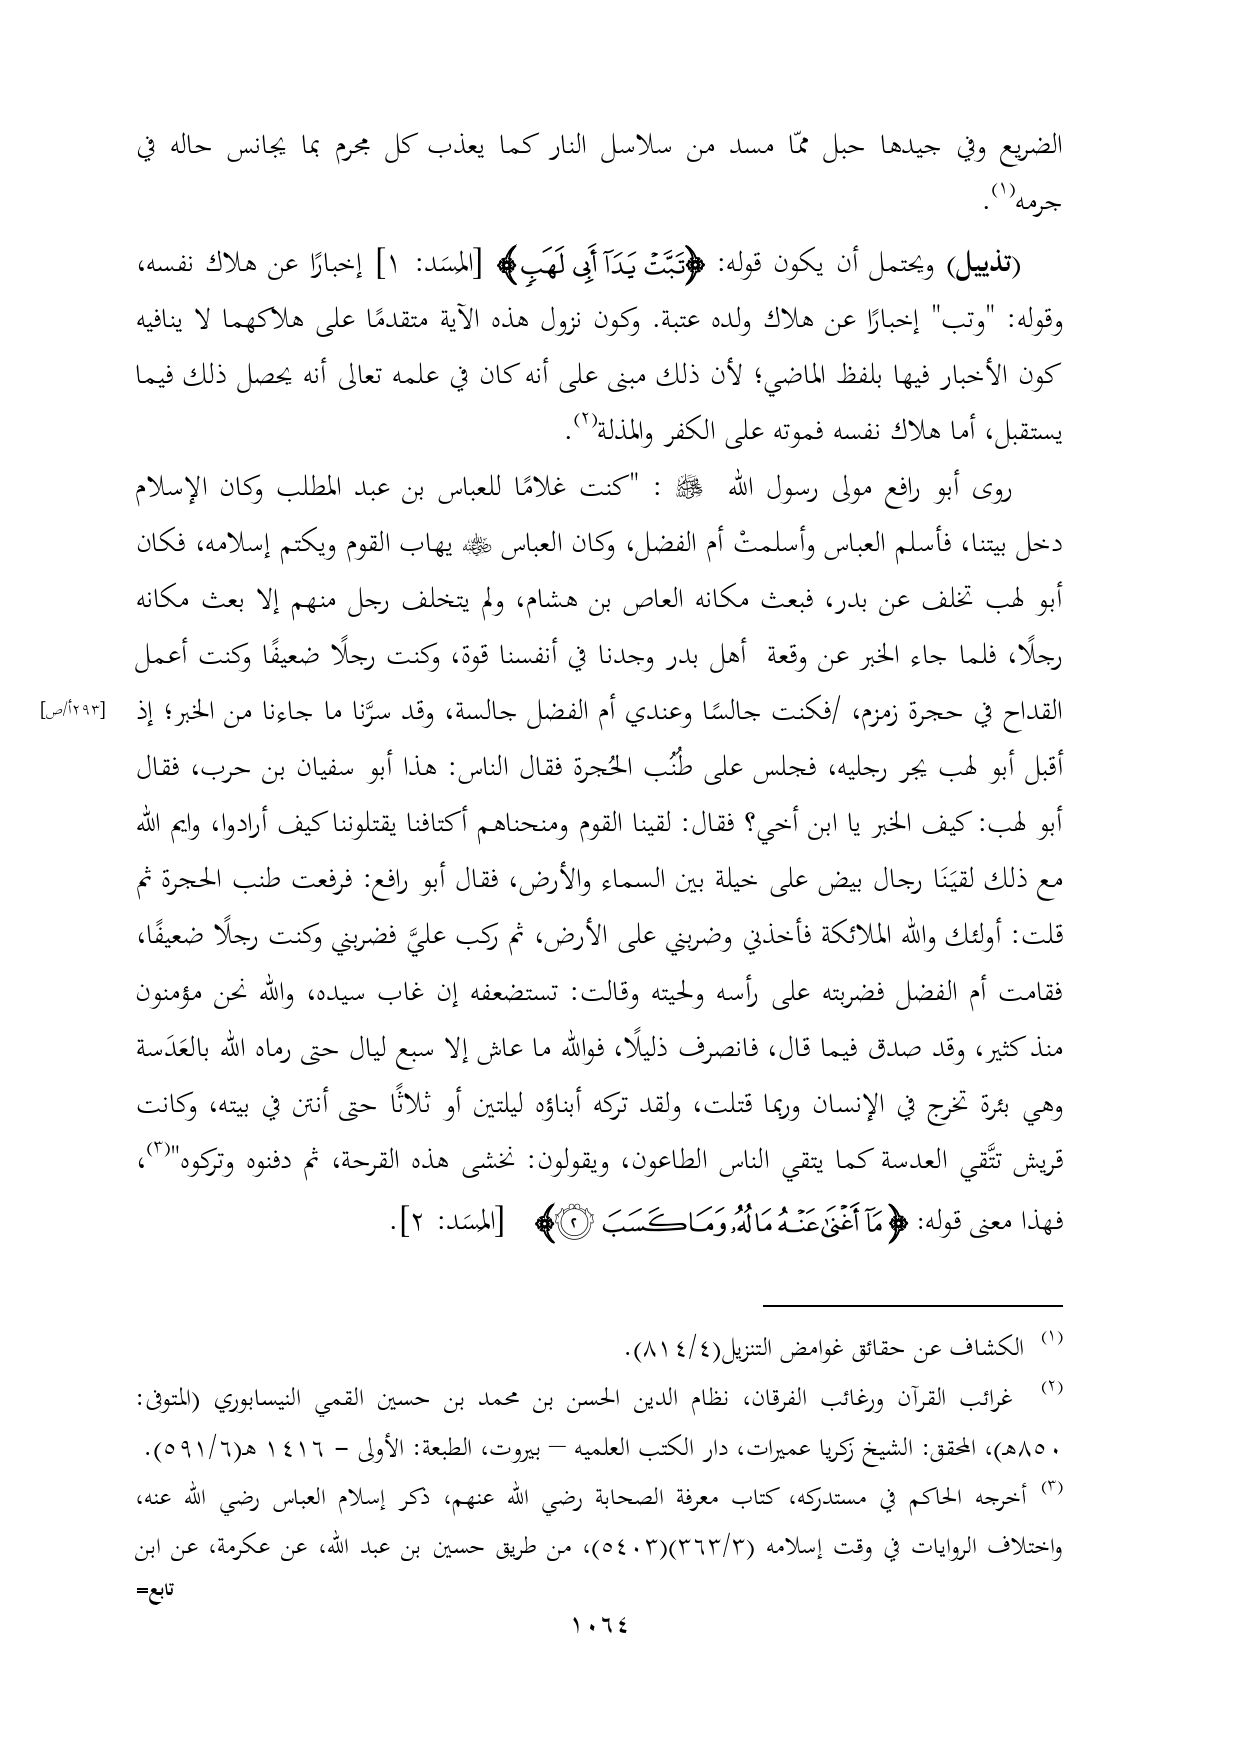 الضريع وفي جيدها حبل ممّا مسد من سلاسل النار كما يعذب كل مجرم بما يجانس حاله في
جرمه(١).
(تذييل) ويحتمل أن يكون قوله: ﴿تَبَّتۡ يَدَآ أَبِي لَهَبٖ﴾ [المسَد: ١] إخبارًا عن هلاك نفسه،
وقوله: "وتب" إخبارًا عن هلاك ولده عتبة. وكون نزول هذه الآية متقدمًا على هلاكهما لا ينافيه
كون الأخبار فيها بلفظ الماضي؛ لأن ذلك مبنى على أنه كان في علمه تعالى أنه يحصل ذلك فيما
يستقبل، أما هلاك نفسه فموته على الكفر والمذلة(٢).
روى أبو رافع مولى رسول الله ﷺ : "كنت غلامًا للعباس بن عبد المطلب وكان الإسلام
دخل بيتنا، فأسلم العباس وأسلمتْ أم الفضل، وكان العباس ﷺ يهاب القوم ويكتم إسلامه، فكان
أبو لهب تخلف عن بدر، فبعث مكانه العاص بن هشام، ولم يتخلف رجل منهم إلا بعث مكانه
رجلًا، فلما جاء الخبر عن وقعة أهل بدر وجدنا في أنفسنا قوة، وكنت رجلًا ضعيفًا وكنت أعمل
القداح في حجرة زمزم، /فكنت جالسًا وعندي أم الفضل جالسة، وقد سرَّنا ما جاءنا من الخبر؛ إذ [٢٩٣أ/ص]
أقبل أبو لهب يجر رجليه، فجلس على طُنُب الحُجرة فقال الناس: هذا أبو سفيان بن حرب، فقال
أبو لهب: كيف الخبر يا ابن أخي؟ فقال: لقينا القوم ومنحناهم أكتافنا يقتلوننا كيف أرادوا، وايم الله
مع ذلك لقيَنَا رجال بيض على خيلة بين السماء والأرض، فقال أبو رافع: فرفعت طنب الحجرة ثم
قلت: أولئك والله الملائكة فأخذني وضربني على الأرض، ثم ركب عليَّ فضربني وكنت رجلًا ضعيفًا،
فقامت أم الفضل فضربته على رأسه ولحيته وقالت: تستضعفه إن غاب سيده، والله نحن مؤمنون
منذ كثير، وقد صدق فيما قال، فانصرف ذليلًا، فوالله ما عاش إلا سبع ليال حتى رماه الله بالعَدَسة
وهي بثرة تخرج في الإنسان وربما قتلت، ولقد تركه أبناؤه ليلتين أو ثلاثًا حتى أنتن في بيته، وكانت
قريش تتَّقي العدسة كما يتقي الناس الطاعون، ويقولون: نخشى هذه القرحة، ثم دفنوه وتركوه"(٣)،
فهذا معنى قوله: ﴿مَآ أَغۡنَىٰ عَنۡهُ مَالُهُۥ وَمَا كَسَبَ ۝٢﴾ [المسَد: ٢].
(١) الكشاف عن حقائق غوامض التنزيل(٨١٤/٤).
(٢) غرائب القرآن ورغائب الفرقان، نظام الدين الحسن بن محمد بن حسين القمي النيسابوري (المتوفى:
٨٥٠هـ)، المحقق: الشيخ زكريا عميرات، دار الكتب العلميه – بيروت، الطبعة: الأولى – ١٤١٦ هـ(٥٩١/٦).
(٣) أخرجه الحاكم في مستدركه، كتاب معرفة الصحابة رضي الله عنهم، ذكر إسلام العباس رضي الله عنه،
واختلاف الروايات في وقت إسلامه (٣٦٣/٣)(٥٤٠٣)، من طريق حسين بن عبد الله، عن عكرمة، عن ابن
تابع=
١٠٦٤